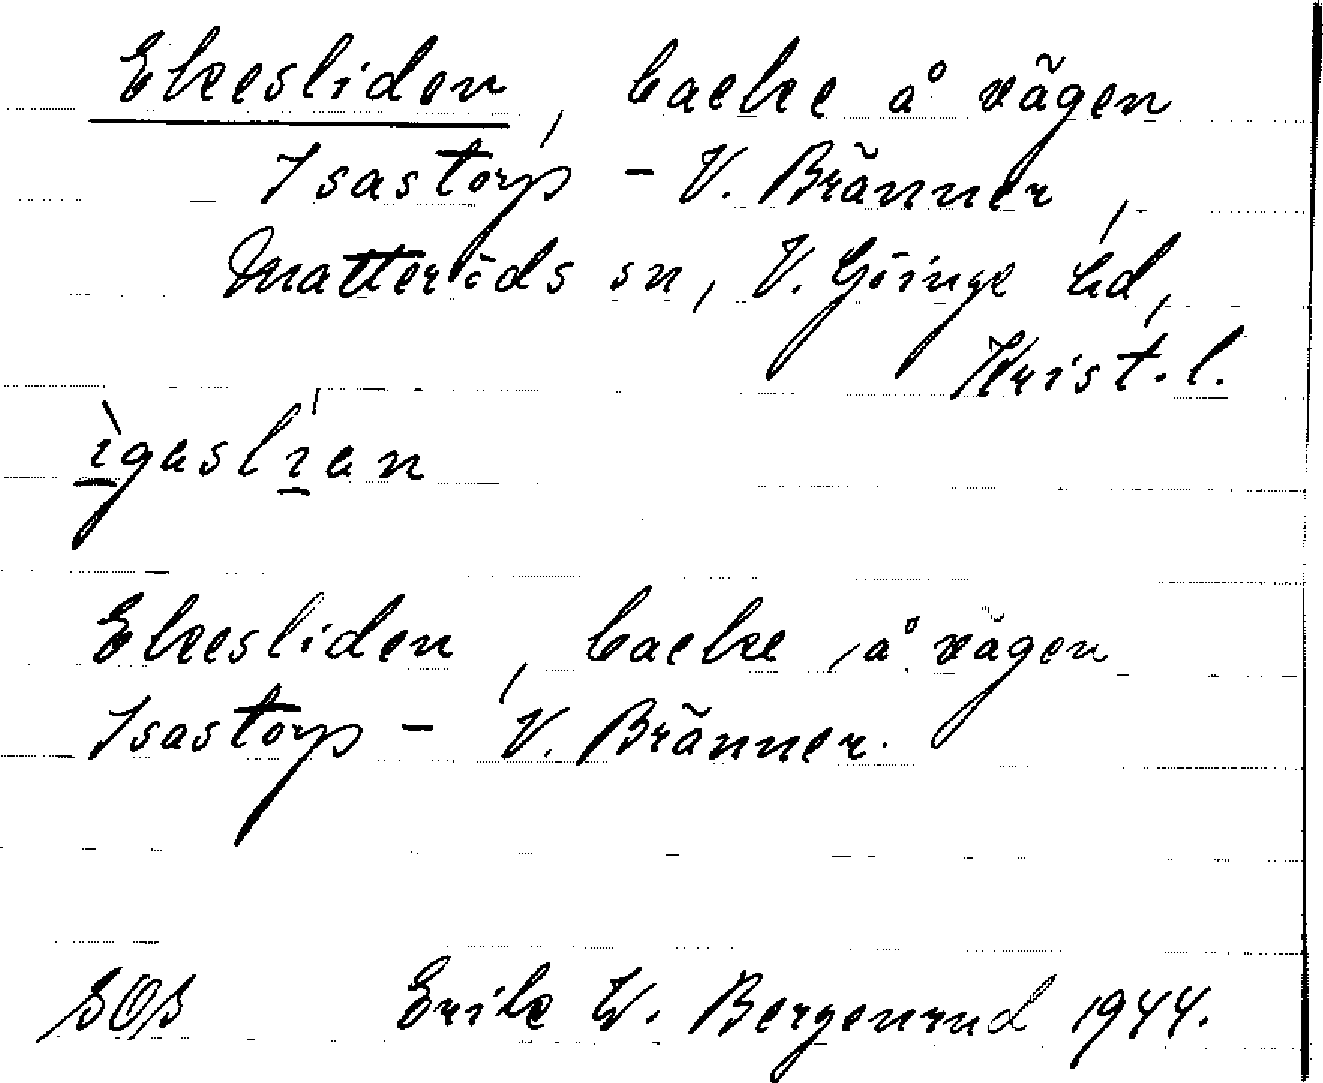 Ekesliden, backe å vägen
Isastorp - V. Bränner,
Matteröds sn, V. Göinge hd,
Krist. l.
ìgasLían
Ekesliden, backe å vägen
Isastorp - V. Bränner.
SOS Erik W. Bergenrud 1944.